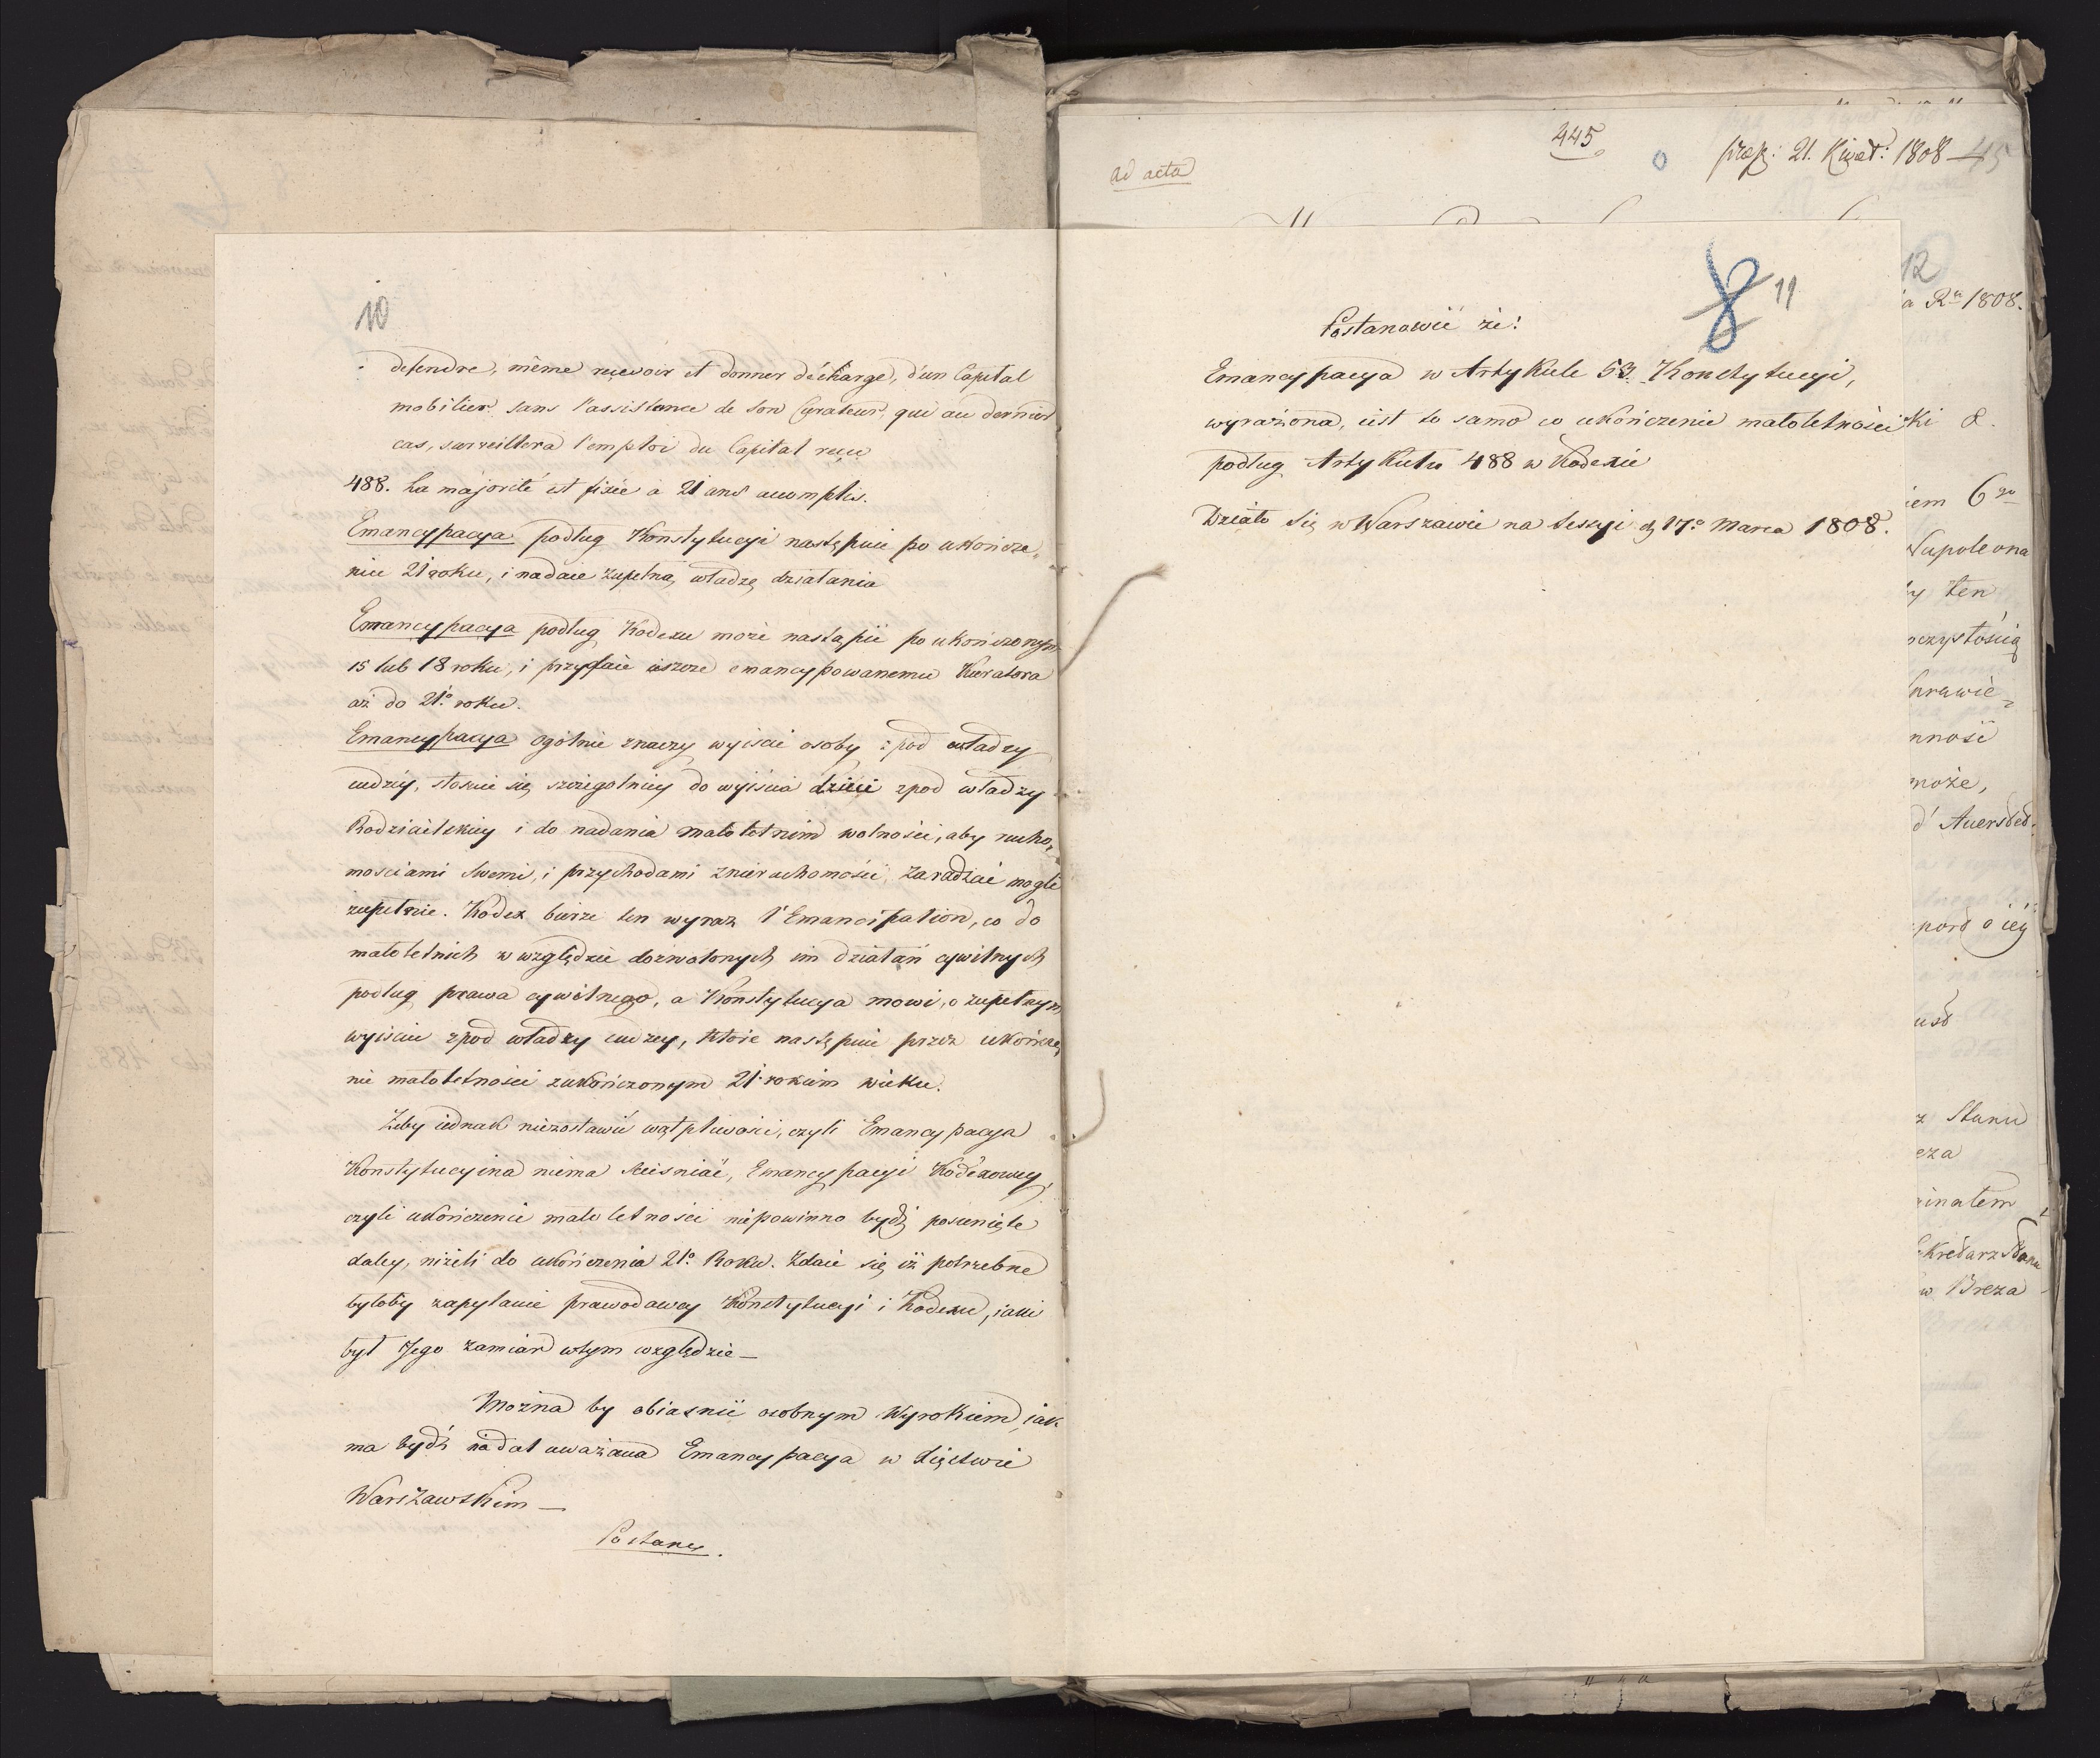 10
defendre, même recevoir et donner décharge, d'un Capital
mobilier sans l'assistance de son Curateur, qui au dernier
cas, surveillera l'emploi du Capital reçu
488. La majorité est fixée a 21 ans accomplis.
Emancypacya podług Konstytucyi następuie po ukończe„
niu 21 roku, i nadaie zupełną władzę działania
Emancypacya podług Kodexu może nastąpić po ukończonym
15 lub 18 roku, i przydaie ieszcze emancypowanemu Kuratora
aż do 21º roku.
Emancypacya ogólnie znaczy wyiście osoby zpod władzy
cudzéy, stosuie się szczegolniey do wyiścia dzieci zpod władzy
Rodzicielskiey i do nadania małoletnim wolności, aby rucho„
mościami swemi, i przychodami znieruchomości zaradzać mogli
zupełnie. Kodex bierze ten wyraz l'Emancipation, co do
małoletnich w względzie dozwolonych im działań cywilnych
podług prawa cywilnego, a Konstytucya mowi, o zupełnym
wyiściu zpod władzy cudzey, które następuie przez ukończe„
nie małoletności zukończonym 21. rokiem wieku.
Żeby iednak niezostawić wątpliwości, czyli Emancypacya
Konstytucyina niema ścieśniać, Emancypacyi Kodexowey,
czyli ukończenie małoletności niepowinno bydź posunięte
daley, niżeli do ukończenia 21º Roku. Zdaie się iż potrzebne
byłoby zapytanie prawodawcy Konstytucyi i Kodexu, iaki
był Jego zamiar wtym względzie—
Można by obiaśnić osobnym Wyrokiem, iak
ma bydź nadal uważana Emancypacya w Xięstwie
Warszawskim—
Postano
ad acta
445
praes: 21. Kwiet: 1808
45
8
11
Postanowić że:
Emancypacya w Artykule 53. Konstytucyi,
wyrażona, iest to samo co ukończenie małoletności
podług Artykułu 488 w Kodexie
Działo się w Warszawie na Sessyi d. 17º Marca 1808.
12
a Ru 1808.
ki 8.
iem 6go
Napoleona
y ten
oczystością
prawie„
nność
może,
d' Auersted
o iey
z Stanu
eza
Sekretarz Stanu
w Breza